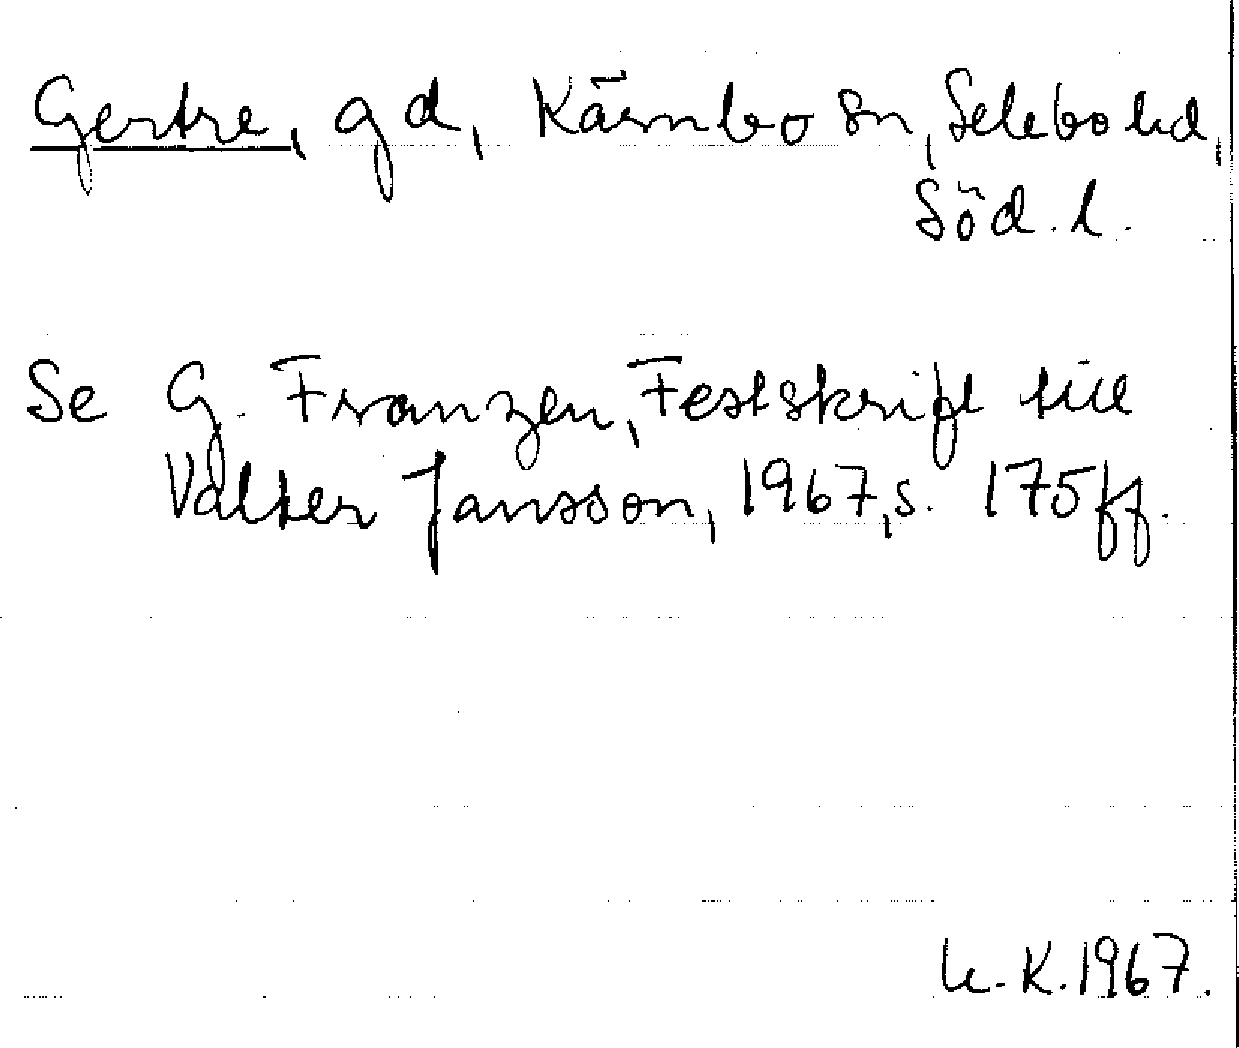 Gertre, gd, Kärnbo sn, Selebo hd,
Söd. l.
Se G. Franzén, Festskrift till
Valter Jansson, 1967, s. 175 ff.
K. 1967.